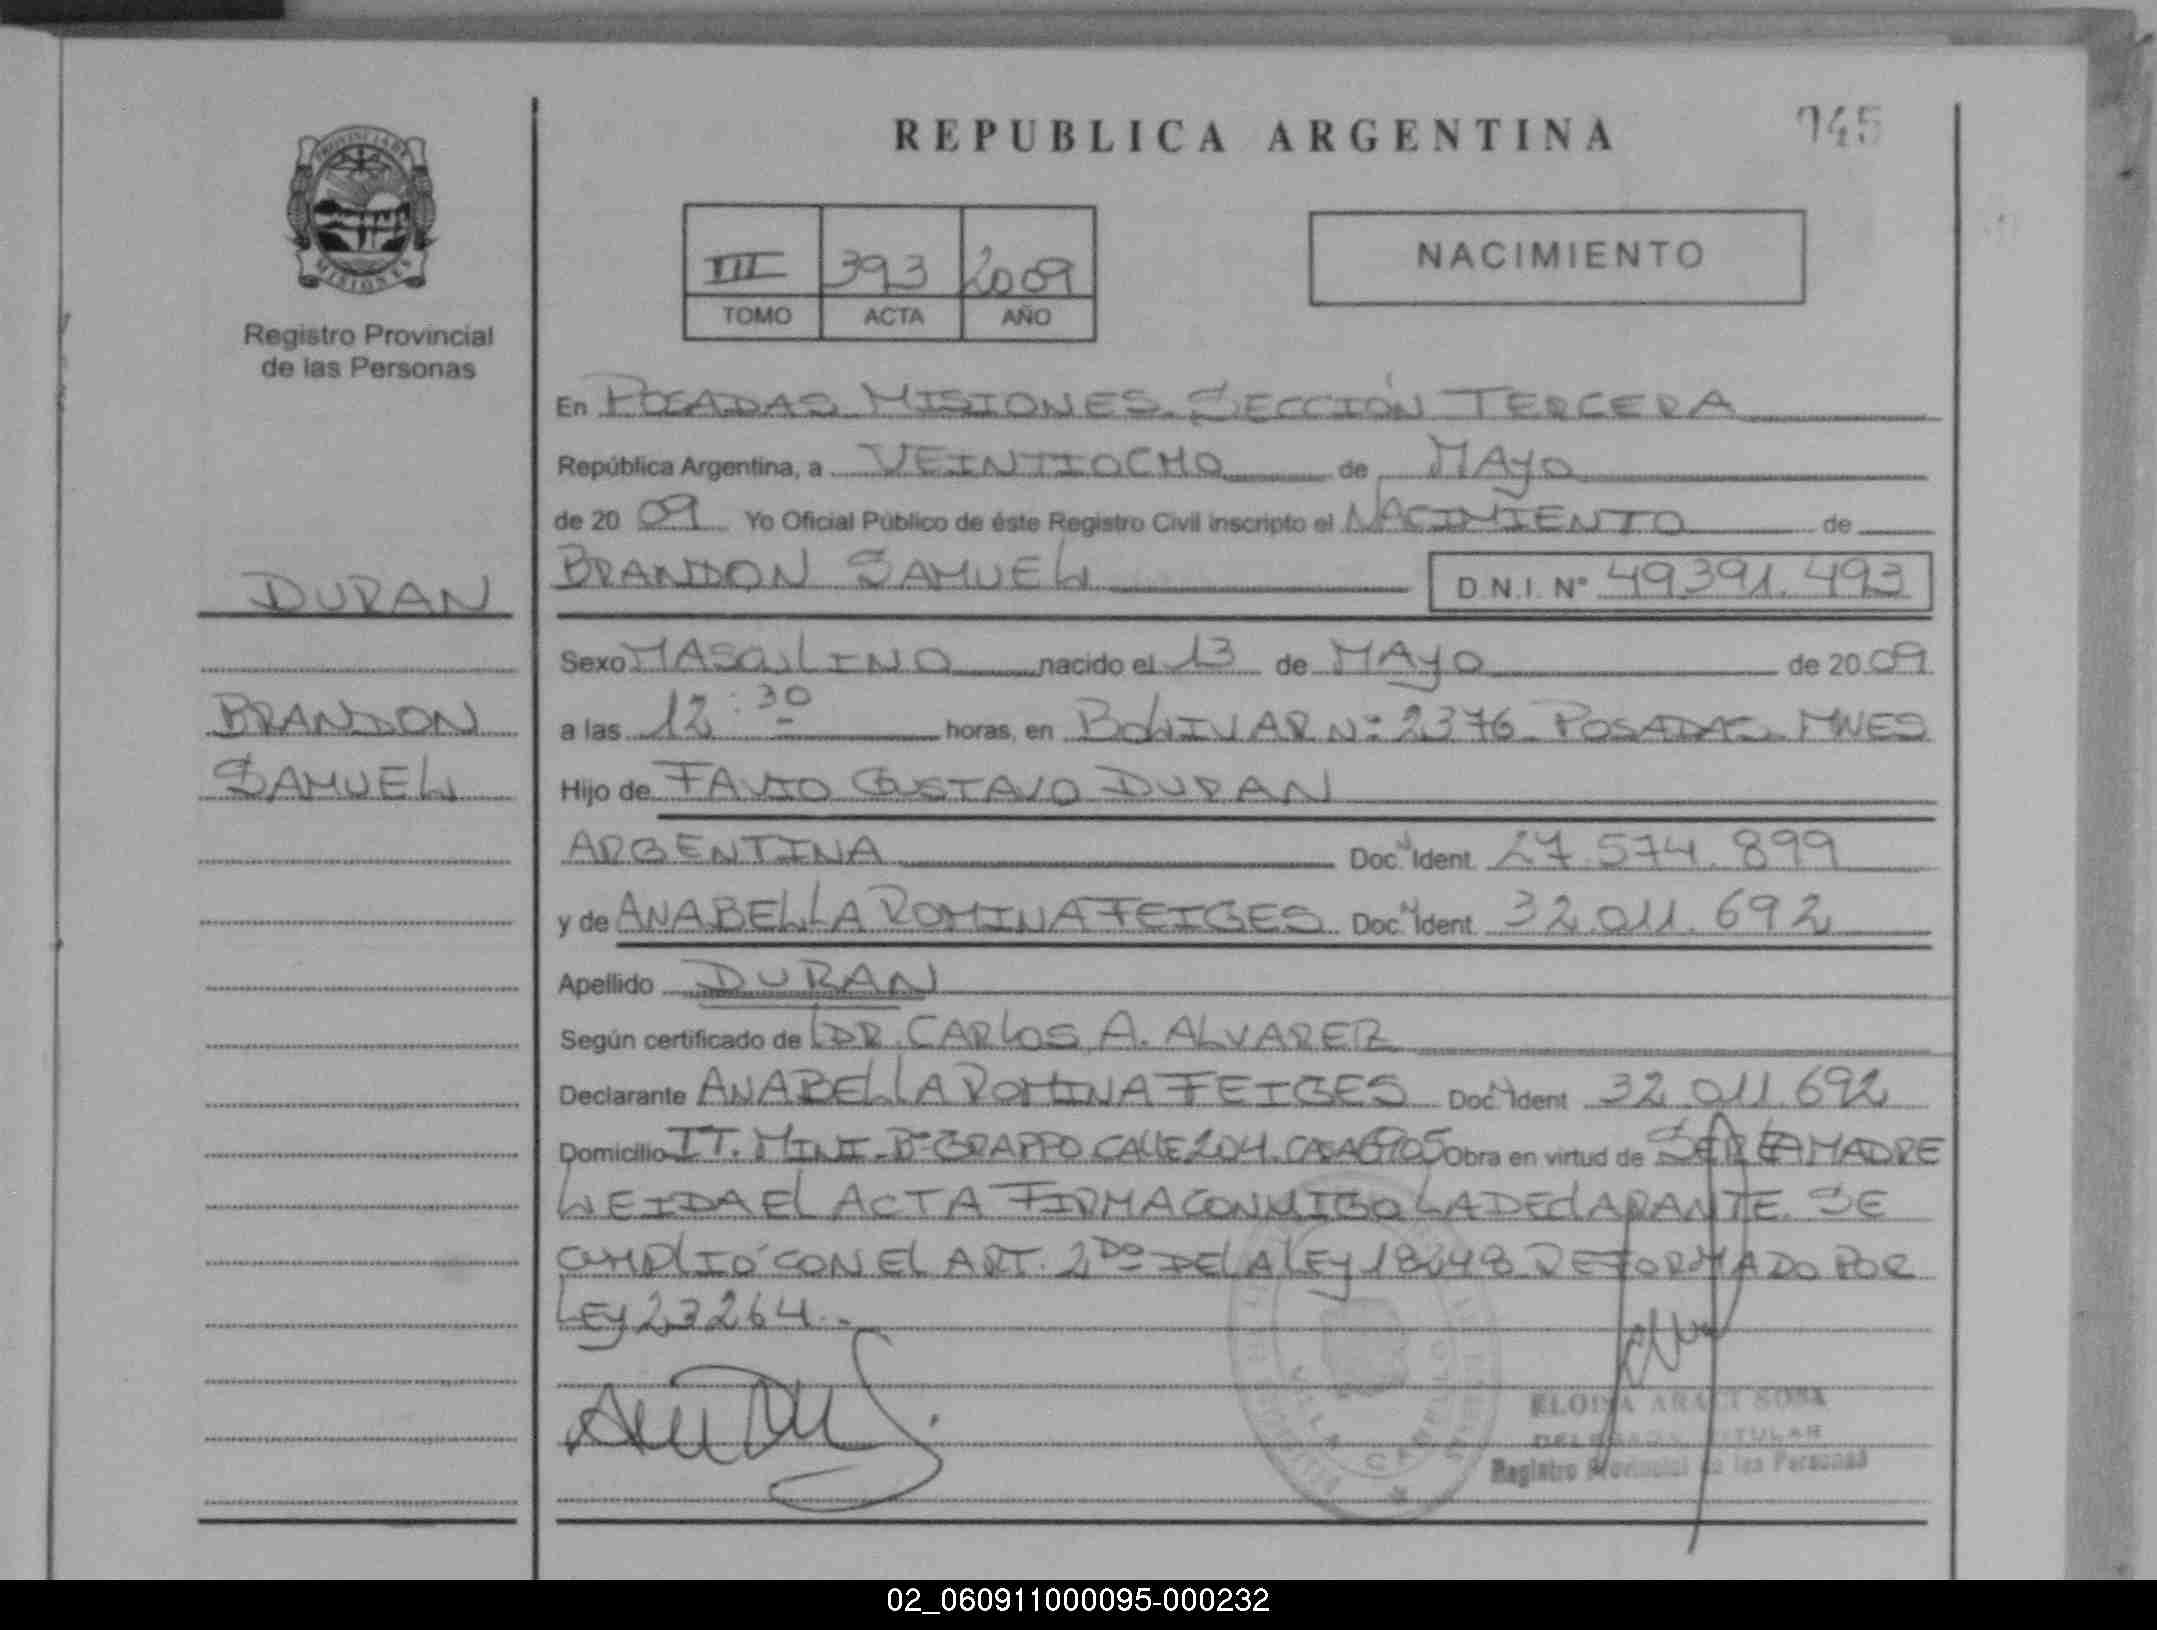 REPUBLICA ARGENTINA
745
PROVINCIA DE
MISIONES
Registro Provincial
de las Personas
III 393 2009
TOMO ACTA AÑO
NACIMIENTO
En POSADAS MISIONES. SECCIÓN TERCERA
República Argentina, a VEINTIOCHO de MAYO
de 20 09 Yo Oficial Público de éste Registro Civil inscripto el NACIMIENTO de
DURAN
BRANDON SAMUEL D.N.I. Nº 49391.493
Sexo MASCULINO nacido el 13 de MAYO de 20 09
BRANDON
a las 12:30 horas, en BOLIVAR Nº 2376 POSADAS MNES
SAMUEL
Hijo de FAVIO GUSTAVO DURAN
ARGENTINA Doc. Ident. 27.574.899
y de ANABELLA ROMINA FEIGES Doc. Ident. 32.011.692
Apellido DURAN
Según certificado de DR. CARLOS A. ALVAREZ
Declarante ANABELLA ROMINA FEIGES Doc. Ident 32.011.692
Domicilio IT. MINI Bº GRAPPO CALLE 204. CASA Obra en virtud de SER LA MADRE
LEIDA EL ACTA FIRMA CONMIGO LA DECLARANTE. SE
CUMPLIÓ CON EL ART. 2DO DE LA LEY 18248 REFORMADO POR
LEY 23264.-
VILLA CABELLO
ELOISA ARACI SOSA
DELEGADA TITULAR
Registro Provincial de las Personas
02_060911000095-000232